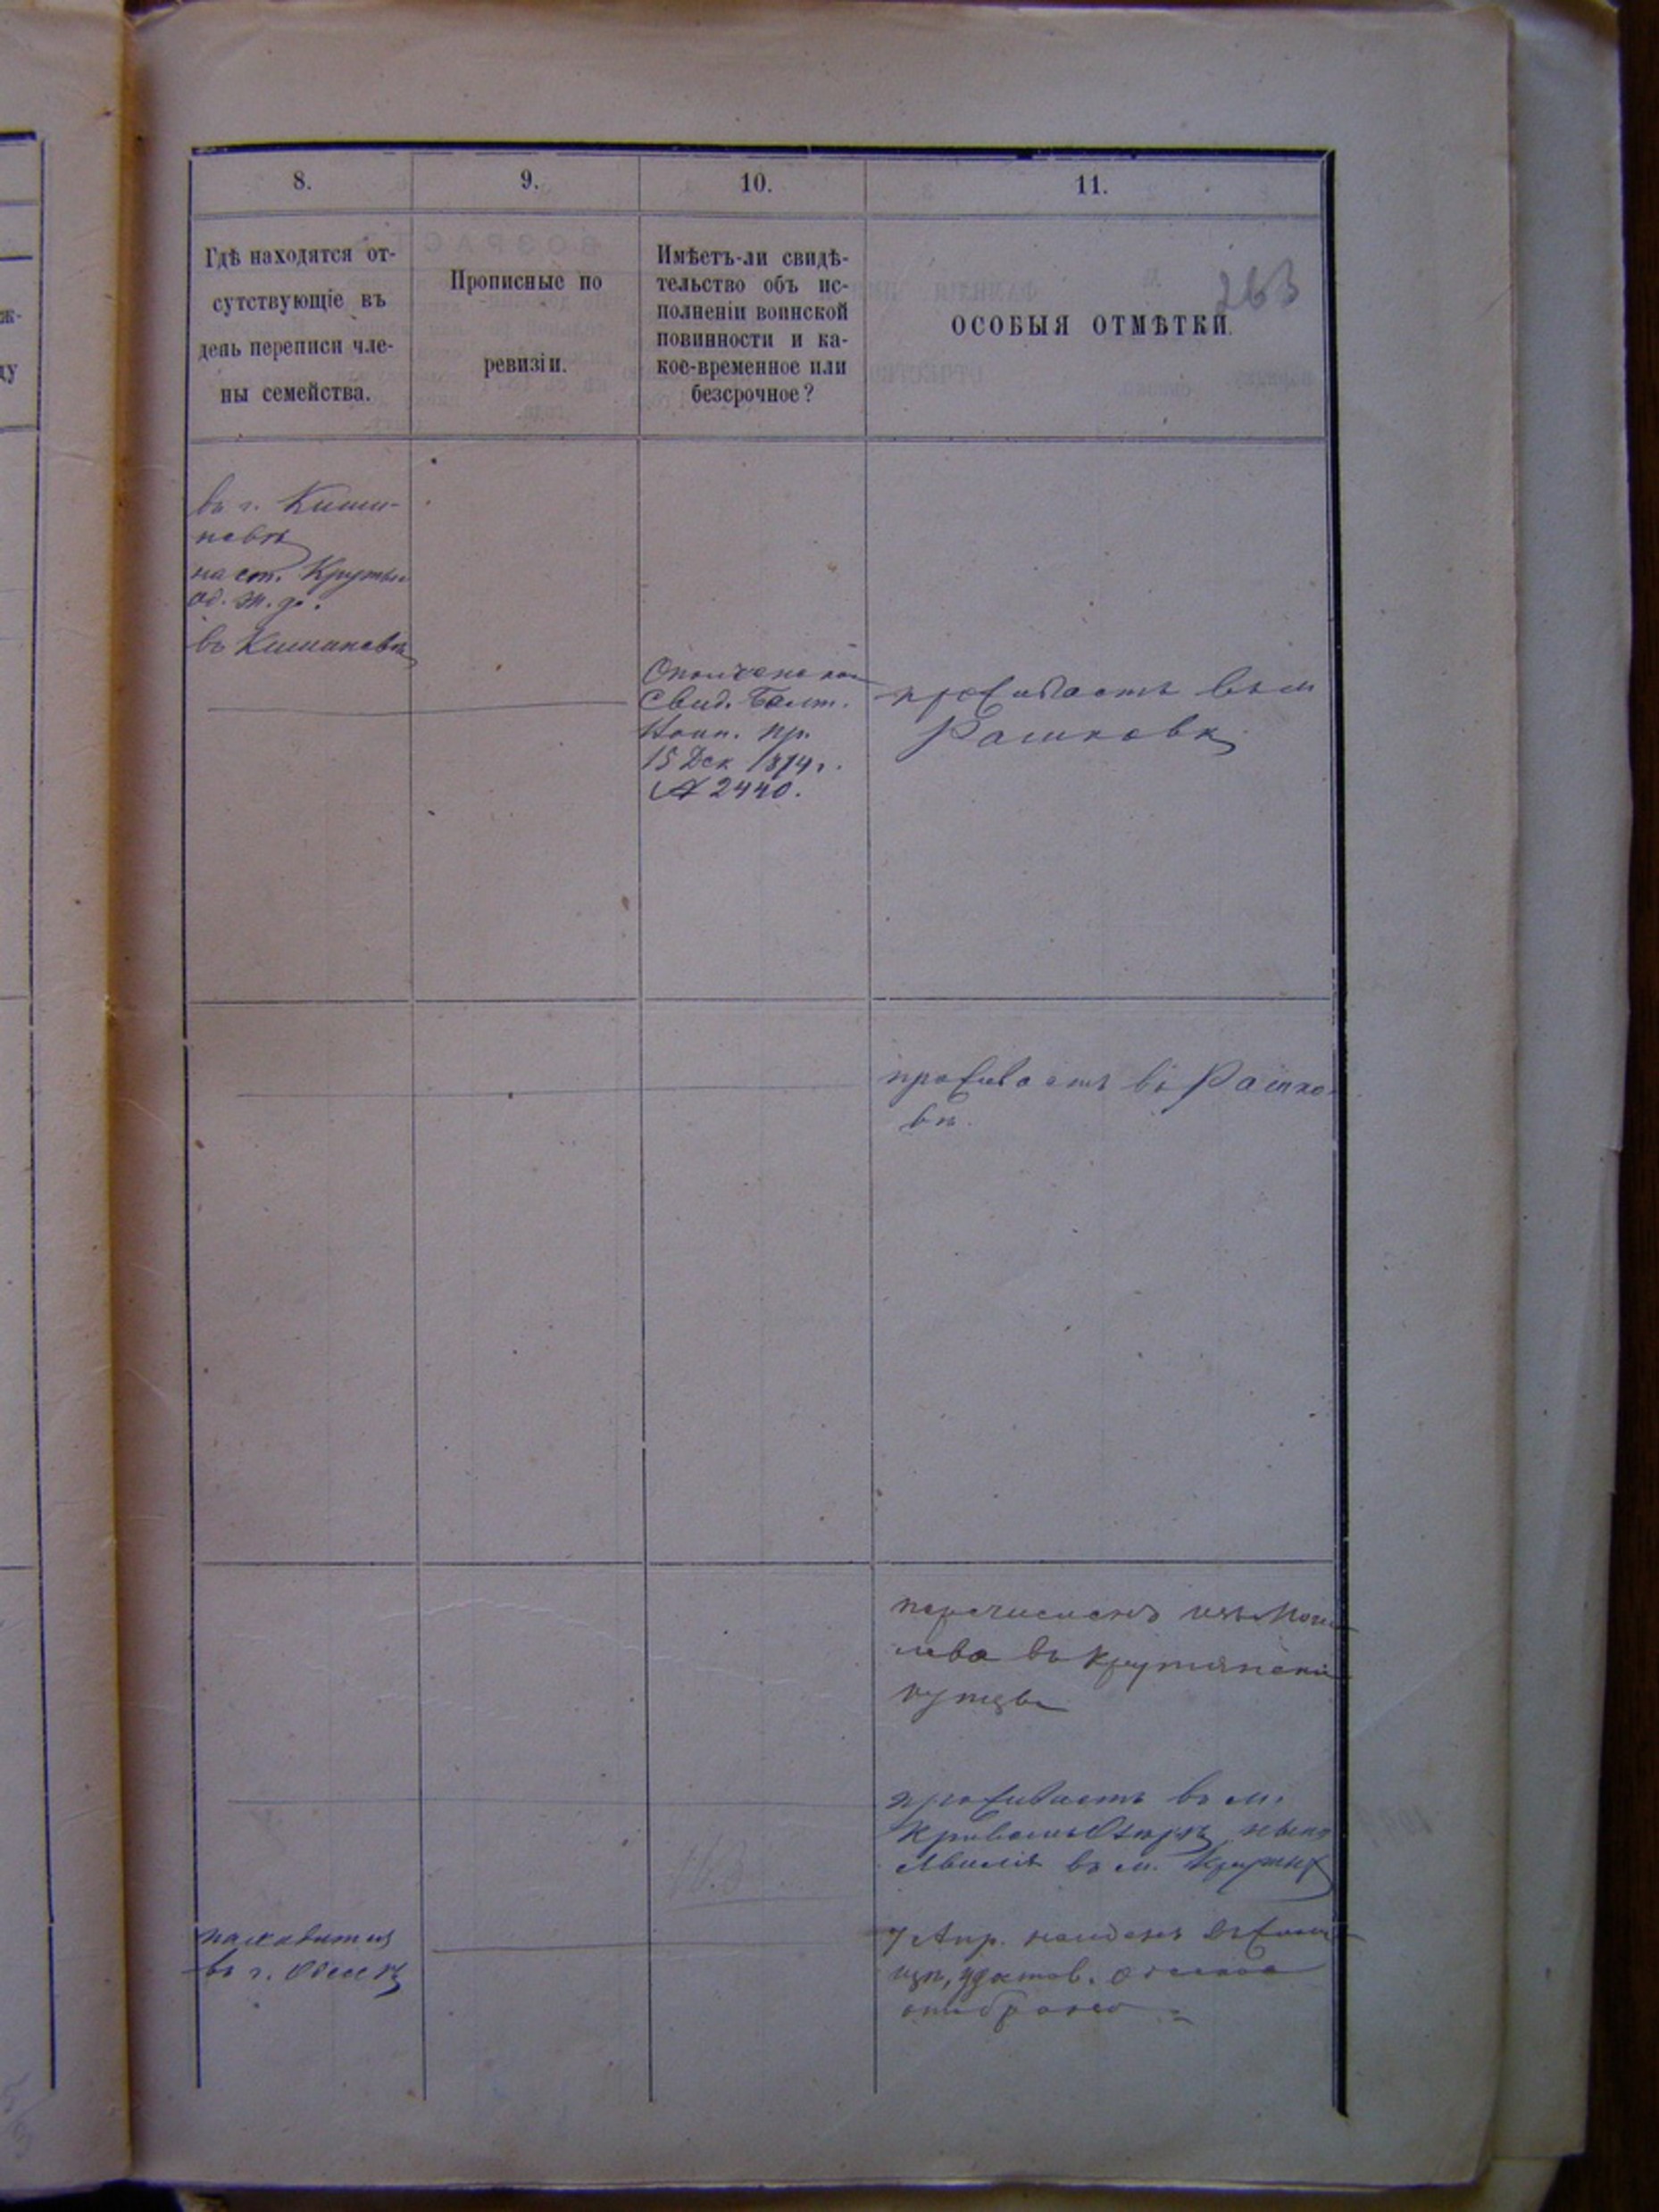 8.
9.
10.
11.
Гдѣ находятся от-
сутствующіе въ
день переписи чле-
ны семейства.
Прописные по
ревизіи.
Имѣетъ-ли свидѣ-
тельство объ ис-
полненіи воинской
повинности и ка-
кое-временное или
безсрочное?
263
ОСОБЫЯ ОТМѢТКИ.
въ г. Киши-
невѣ
на ст. Круты
Од. ж. д.
въ Кишиневѣ
Свид. Балт.
Воин. пр.
15 Дек 1874 г.
№ 2440.
проживаетъ въ м
Рашковѣ
проживаетъ въ Рашко-
вѣ.
перечисленъ изъ Моги
лева въ Крутянскі
купцы
проживаетъ въ м.
Кривомъ Озерѣ
въ м. Крутыхъ
находится
въ г. Одессѣ
7 Апр.
отобрано